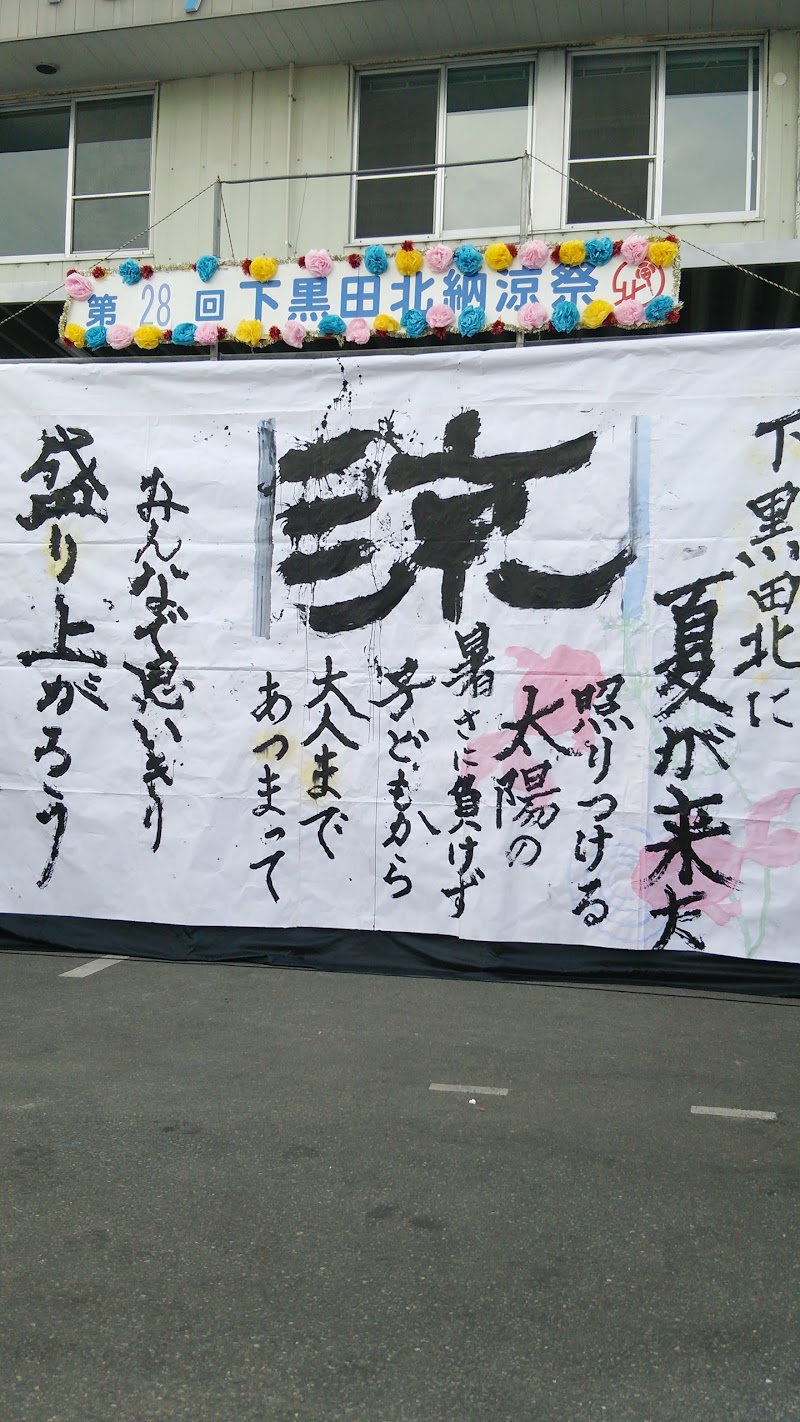 第28回下黒田北納涼祭
下黒田北に
夏が来た
照りつける
太陽の
暑さに負けず
涼
子どもから
大人まで
あつまって
みんなで思いきり
盛り上がろう